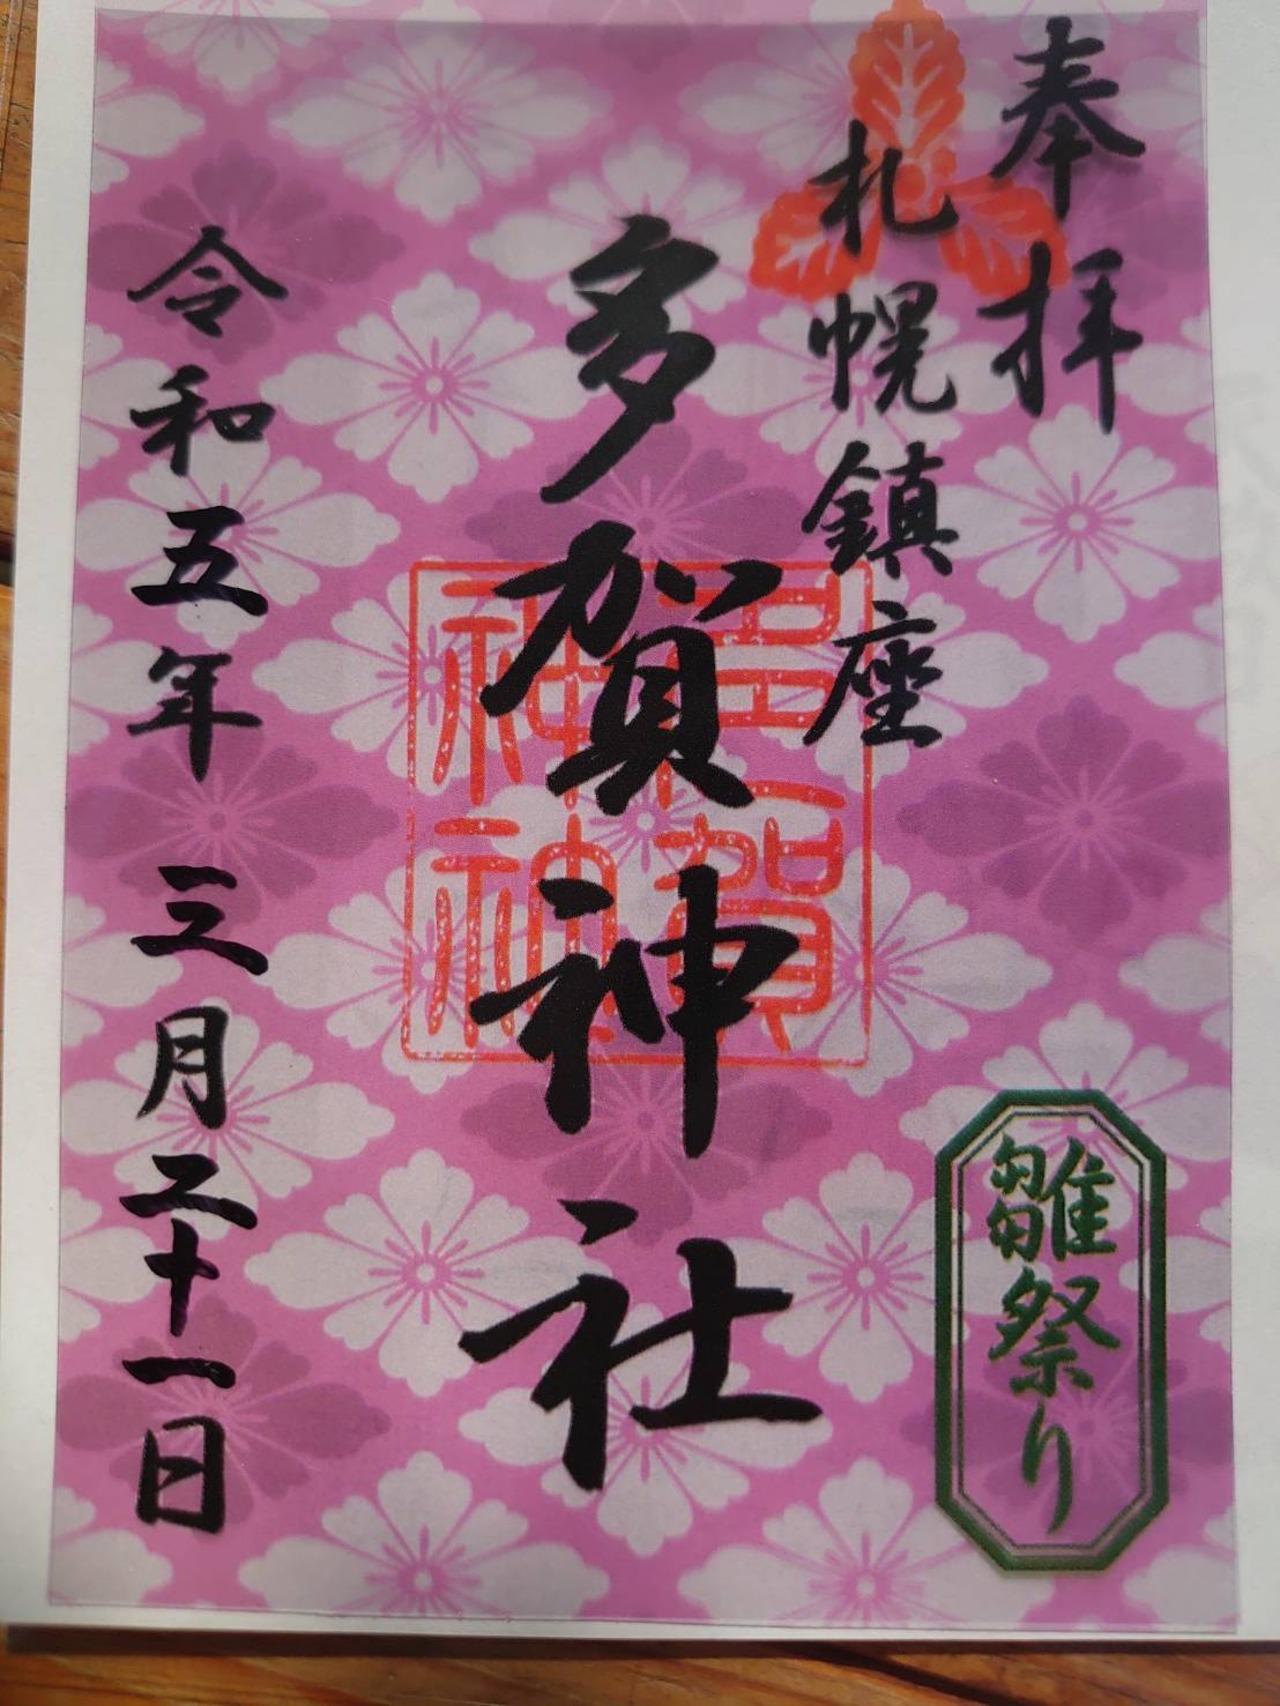 奉拝
札幌鎮座
多賀神社
多賀神社
令和五年 三月二十一日
雛祭り